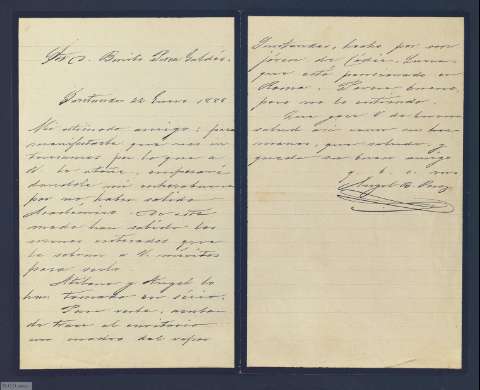 Sr. D. Benito Perez Galdós.
Santander 22 Enero 1888
Mi estimado amigo: para
manifestarle que nos in-
teresamos por lo que a
V. le atañe, empezaré
dandole mi enhorabuena
por no haber salido
Académico. De este
modo han salido los
menos enterados que
le sobran a V. méritos
para serlo.
Atilano y Angel lo
han tomado en sério.
Pues verla, acaban
de traer el
un modelo del vapor
Santander, hecho por un
jóven de Cádiz,
que está pensionado en
Roma. Parece bueno,
pero no lo entiendo.
Que goce V. de buena
salud asi como sus her-
manas, que saludo, y
queda su buen amigo
q. b. s. m.
Angel B. Perez